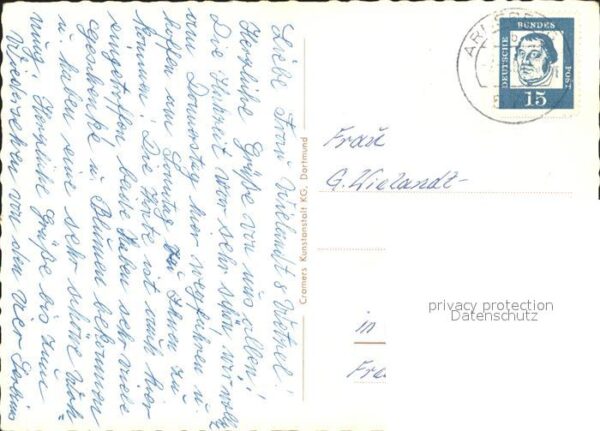 Liebe Frau Wielandt & Bärbel!
Herzliche Grüße von uns allen!
Die Hochzeit war sehr schön, wir wollen
am Donnerstag hier wegfahren u.
hoffen am Sonntag zu Ihnen zu
kommen. Die Karte ist auch hier
eingetroffen beide haben sehr viele
Geschenke u. Blumen bekommen
u. haben eine sehr schöne Woh-
nung. Herzliche Grüße bis zum
Wiedersehen von den vier
Cramers Kunstanstalt KG, Dortmund
DEUTSCHE BUNDESPOST
15
Frau
G. Wielandt-
in
Fre
privacy protection
Datenschutz